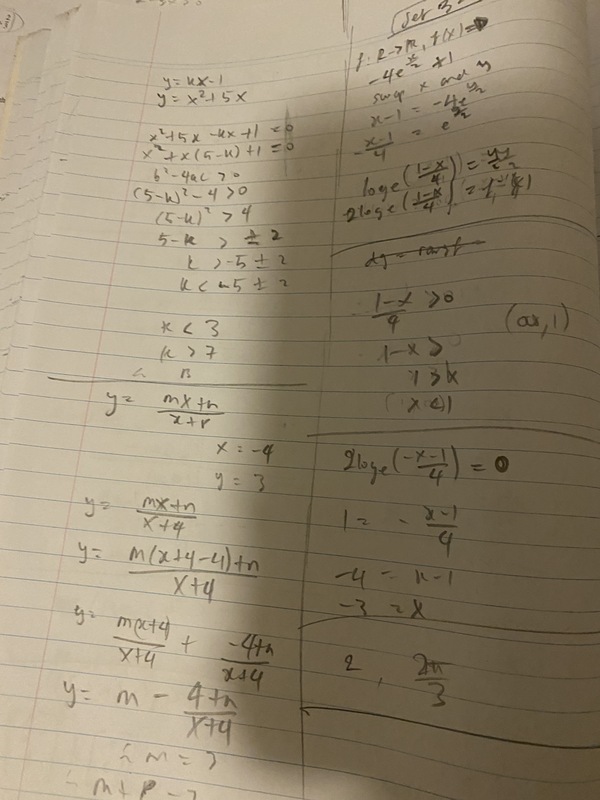 y = kx-1
y = x²+5x
x²+5x-kx+1 = 0
x²+x(5-k)+1 = 0
b²-4ac > 0
(5-k)²-4 > 0
(5-k)² > 4
5-k > ±2
k > -5 ± 2
k < -5 ± 2
k < 3
k > 7
B
y = \frac{mx+n}{x+p}
x = -4
y = 3
y = \frac{mx+n}{x+4}
y = \frac{m(x+4-4)+n}{x+4}
y = \frac{m(x+4}{x+4} + \frac{-4+n}{x+4}
y = m - \frac{4+n}{x+4}
∴ m = 3
f: R→R, f(x) =
-4e^{x/2}
swap x and y
x-1 = -4e^{y/2}
-\frac{x-1}{4} = e^{y/2}
loge(\frac{1-x}{4}) =
2loge(\frac{1-x}{4}) =
\frac{1-x}{4} > 0
(∞,1)
1-x >
1 > x
(x < 1
2loge(\frac{-x-1}{4}) = 0
1 = -\frac{x-1}{4}
-4 = x-1
-3 = x
2, \frac{2π}{3}